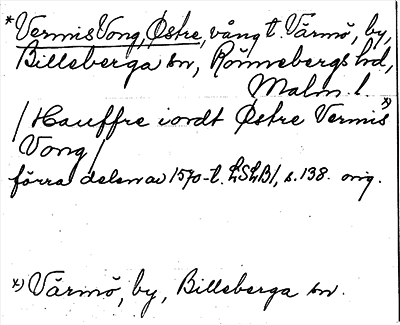 *Vermis Vong, Östre, vång t. Värmö, by,
Billeberga sn, Rönnebergs hd,
Malm. l.
/Hauffre iordt Østre Vermis x)
Vong/
förra delen av 1570-t. LSLB1, s.138. orig.
x) Värmö, by, Billeberga sn.